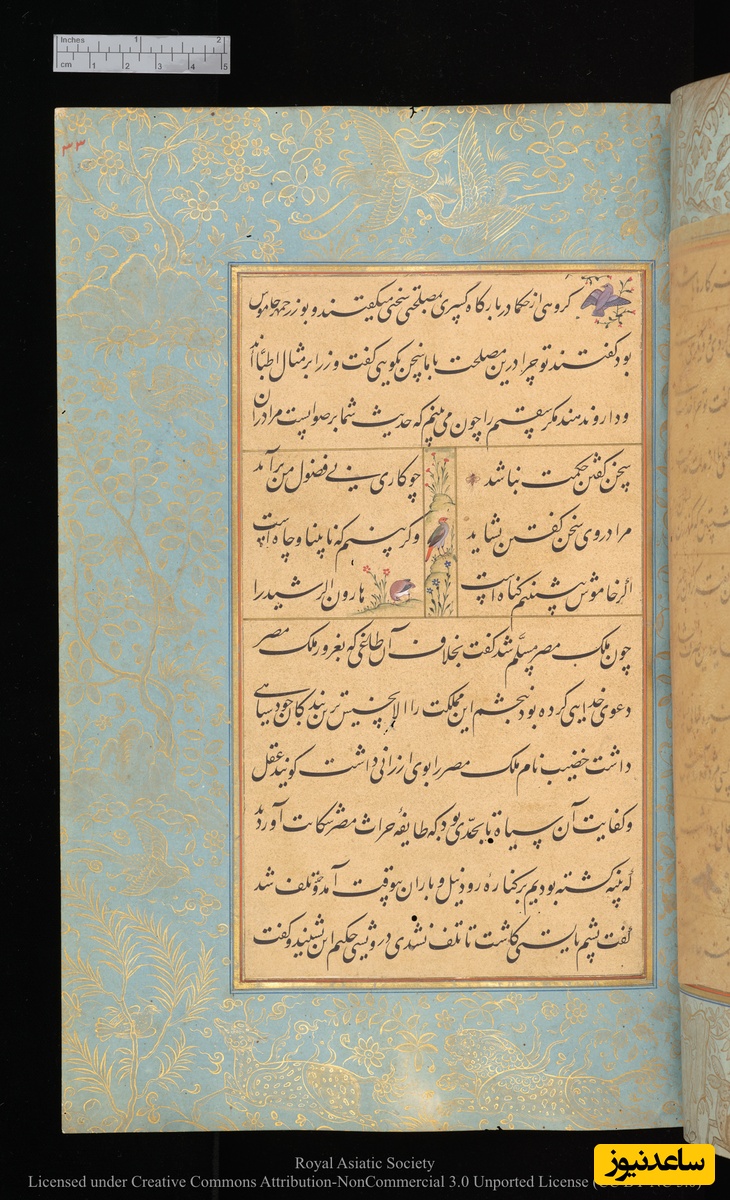 Inches 1 2
cm 1 2 3 4 5
۳۳
گروهی از حکما در بارگاه کسری بمصلحتی سخنی میگفتند و بوزرجمهر خاموش
بود گفتند تو چرا درین مصلحت با ما سخن نگویی گفت وزرا بر مثال اطبااند
و دارو ندهند مگر سقیم را چون می بینم که حدیث شما بر صوابست مرا در ان
سخن گفتن حکمت نباشد چو کاری بی فضول من برآمد
مرا در وی سخن گفتن نشاید وگر بینم که نابینا و چاه است
اگر خاموش بنشینم گناه است هارون الرشید را
چون ملک مصر مسلم شد گفت بخلاف آن طاغی که بغرور ملک مصر
دعوی خدایی کرده بود نبخشم این مملکت را الا بخسیس ترین بندگان خود سیاهی
داشت خضیب نام ملک مصر را بوی ارزانی داشت گویند عقل
و کفایت آن سیاه تا بحدی بود که طایفه حراث مصر شکایت آوردند
که پنبه کشته بودیم بر کناره رود نیل و باران بیوقت آمد و تلف شد
گفت پشم بایستی کاشت تا تلف نشدی درویشی حکیم این بشنید و گفت
Royal Asiatic Society
Licensed under Creative Commons Attribution-NonCommercial 3.0 Unported License
ساعدنیوز